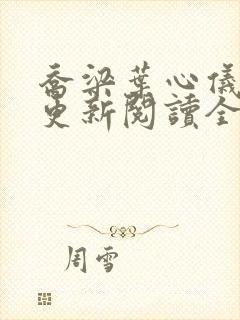 喬梁葉心儀
更新閱讀全
周雪